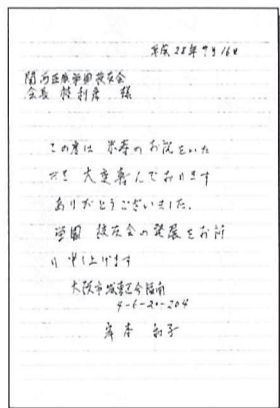 平成28年9月16日
関西医療学園校友会
会長 勝利彦 様
この度は 米寿のお祝をいた
だき 大変喜んでおります
ありがとうございました。
学園 校友会の発展をお祈
り申し上げます
大阪市城東区今福南
4-6-20-204
岸本 和子